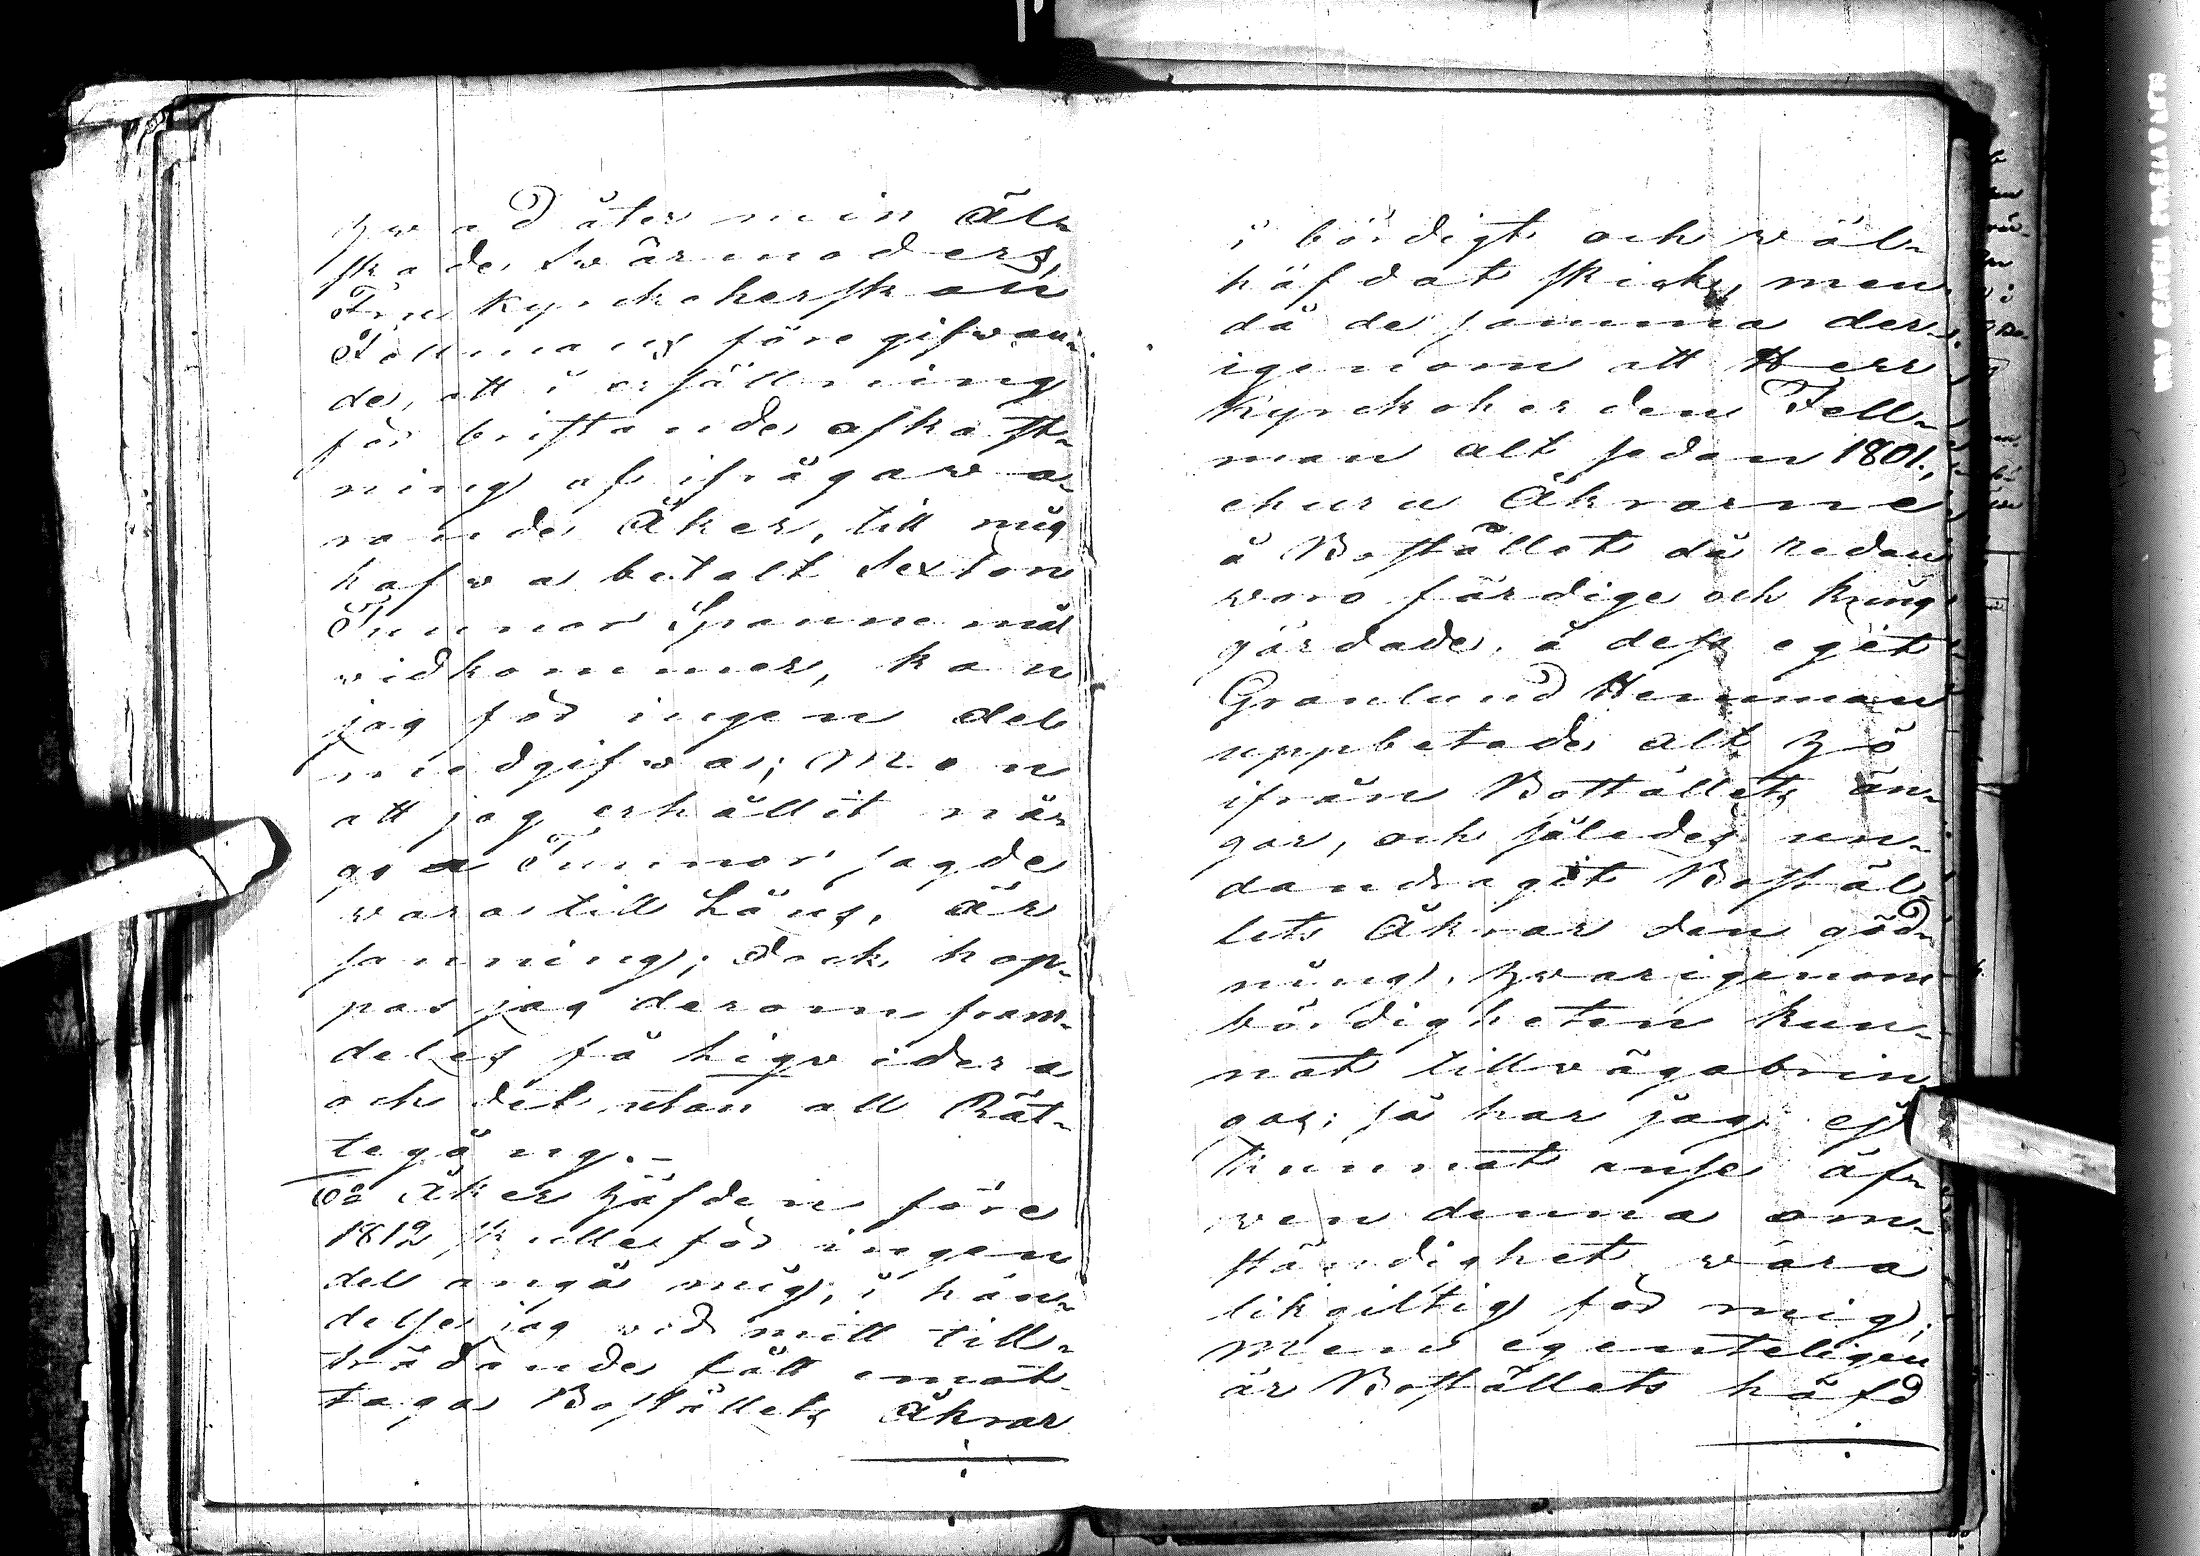 hwad åter min äl-
skade Swärmoders,
Fru Kyrckoherskan
Fellmans föregifwan-
de, att i ersättning
för bristande afkast-
ning af ifrågawa-
rande Åker, till mig
hafwa betalt Sexton
Tunnor Spannemål
widkommer, kan
jag för ingen del
medgifwa; Men
att jag erhållit någ-
gra Tunnor sagde
wara till Låns, är
sanning; dock hop-
pas jag derom fram-
deles få liqvidera
och det utan all Rät-
tegång. -
Då Åker häfden före
1812 skulle för ingen
del angå mig, i hän-
delse jag wid mitt till-
trädande fått emot-
taga Boställets Åkrar
i bördigt och wäl-
häfdat skick, men
då de samma der-
igenom att Herr
Kyrckoherden Fell-
man alt sedan 1801,
ehuru Åkrarne
å Bostället då redan
woro färdige och kring
gärdade, å dess eget
Granlund Hemman
uppbetade alt hö
ifrån Boställets än-
gar, och således un-
dandragit Bostäl-
lets Åkrar den göd-
ning, hwarigenom
bördigheten kun-
nat tillwägabrin-
gas; så har jag ej
kunnat anse äf-
wen denna om-
ständighet wara
likgiltig för mig;
Men egenteligen
är Boställets häfd